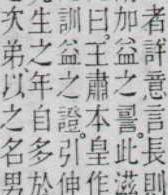 者詳意言長則
加益之詈。此滋
曰。王肅本皇作
訓益之證。引伸
生之年自多於
次弟以之名男